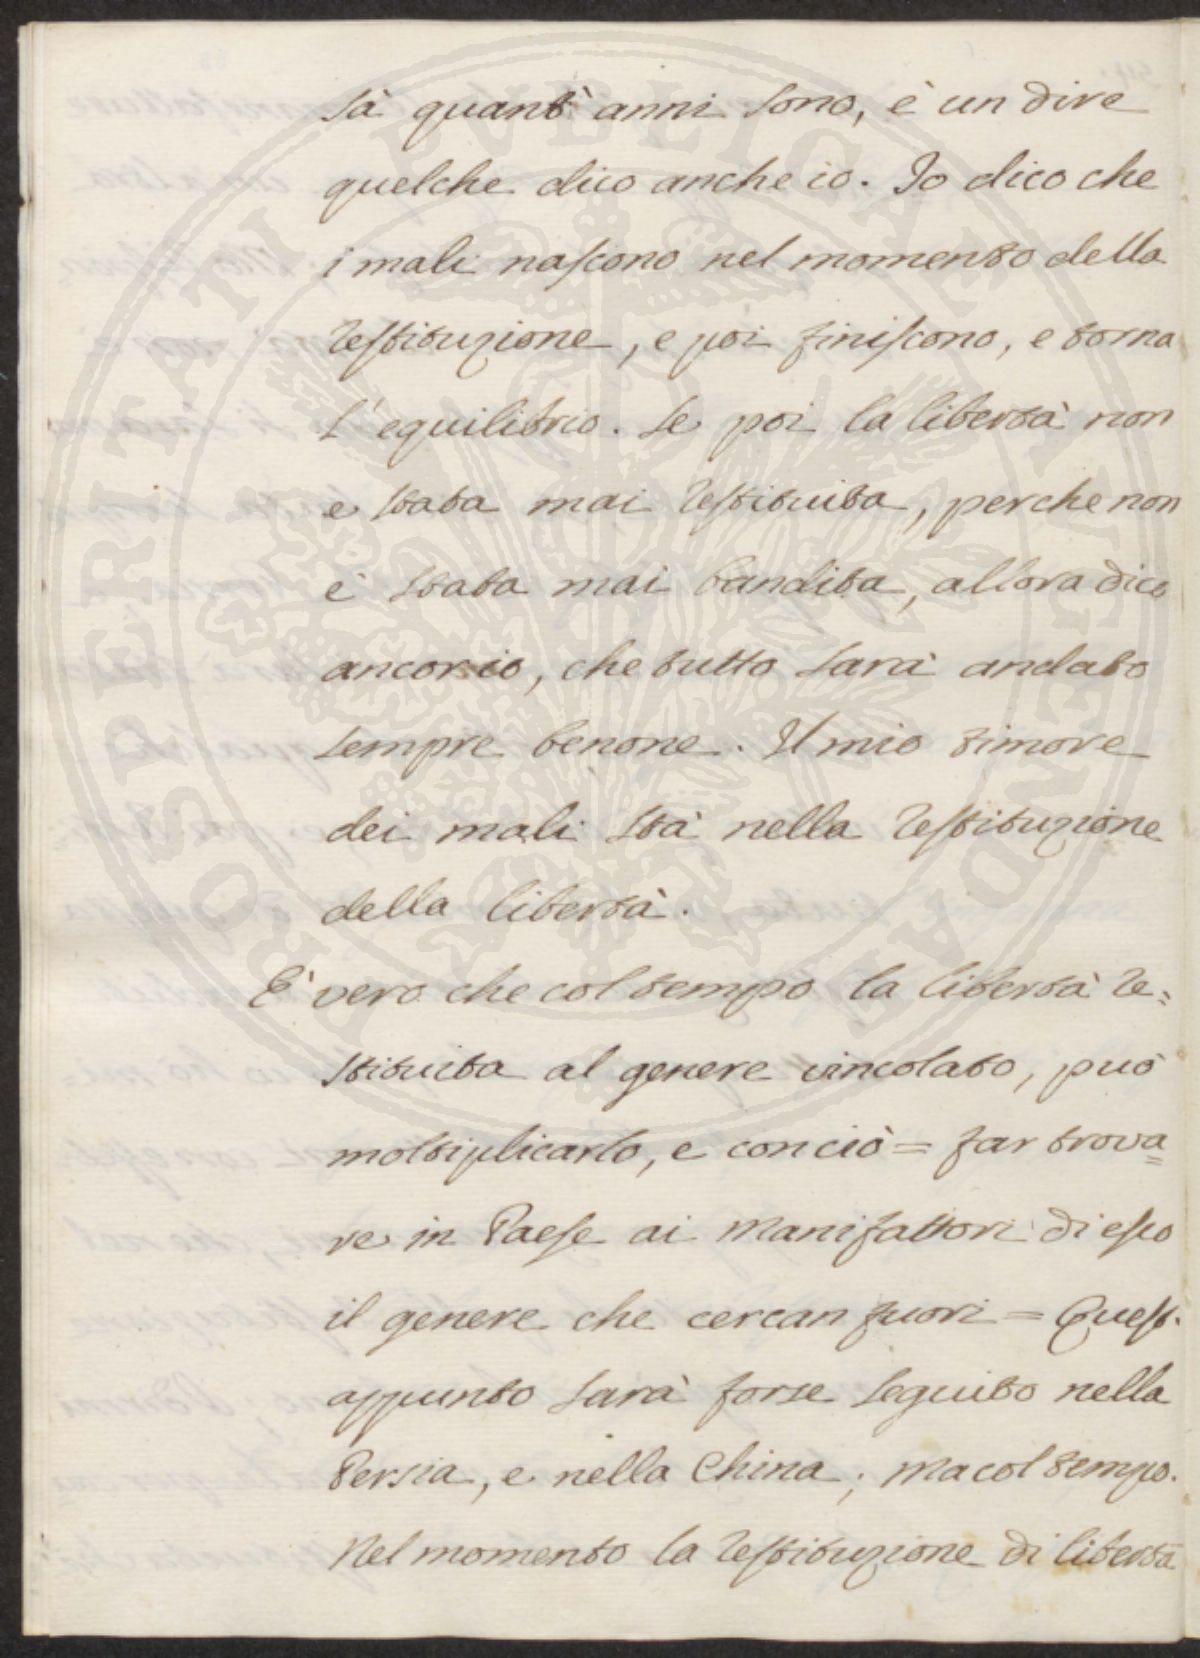 sà quant'anni sono, è un dire
quelche dico anche io. Io dico che
i mali nascono nel momento della
restituzione, e poi finiscono, e torna
l'equilibrio. Se poi la libertà non
e stata mai restituita, perche non
è stata mai bandita, allora dico
ancor io, che tutto sarà andato
sempre benone. Il mio timore
dei mali stà nella restituzione
della libertà.
E' vero che col tempo la libertà re=
stituita al genere vincolato, può
moltiplicarlo, e con ciò = far trova=
re in Paese ai Manifattori di esso
il genere che cercan fuori = Quest'
appunto sarà forse seguito nella
Persia, e nella China; ma col tempo.
Nel momento la restituzione di libertà
PROSPERITATI PVBLICAE AVGENDAE